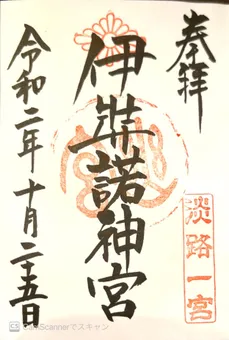 奉拝
淡路一宮
伊弉諾神宮
令和二年十月二十五日
CamScannerでスキャン